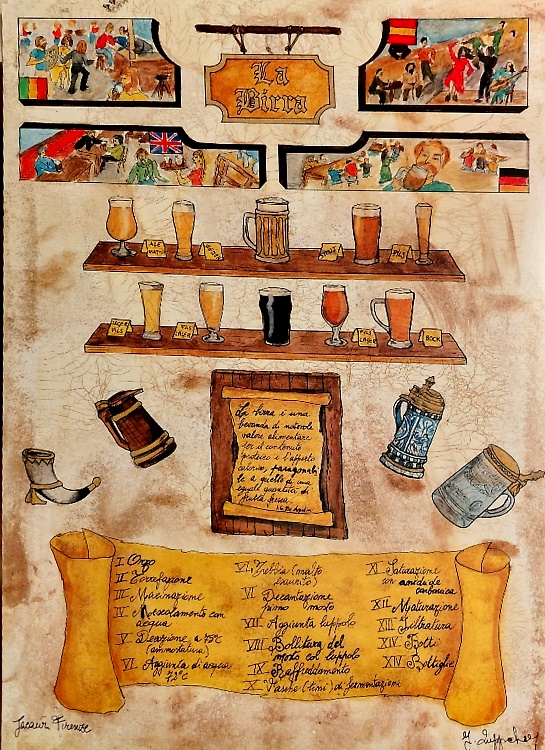 La
Birra
ALE
PILS
PILS
LAGER
BOCK
La birra è una
bevanda di notevole
valore alimentare
per il contenuto
proteico e l'apporto
calorico, paragonabi
le a quello di una
eguale quantità di
frutta fresca
I Orzo
II Torrefazione
III Macinazione
IV Mescolamento con
acqua
V Derazione a 75°C
(ammostatura)
VI. Aggiunta di acqua
72°C
VI. Trebbia (malto
esaurito)
VI Decantazione
primo mosto
VII Aggiunta luppolo
VIII Bollitura del
mosto col luppolo
IX Raffreddamento
X Vasche (tini) di fermentazione
XI Saturazione
con anidride
carbonica
XII Maturazione
XIII Filtratura
XIV Botti
XIV Bottiglie
Firenze